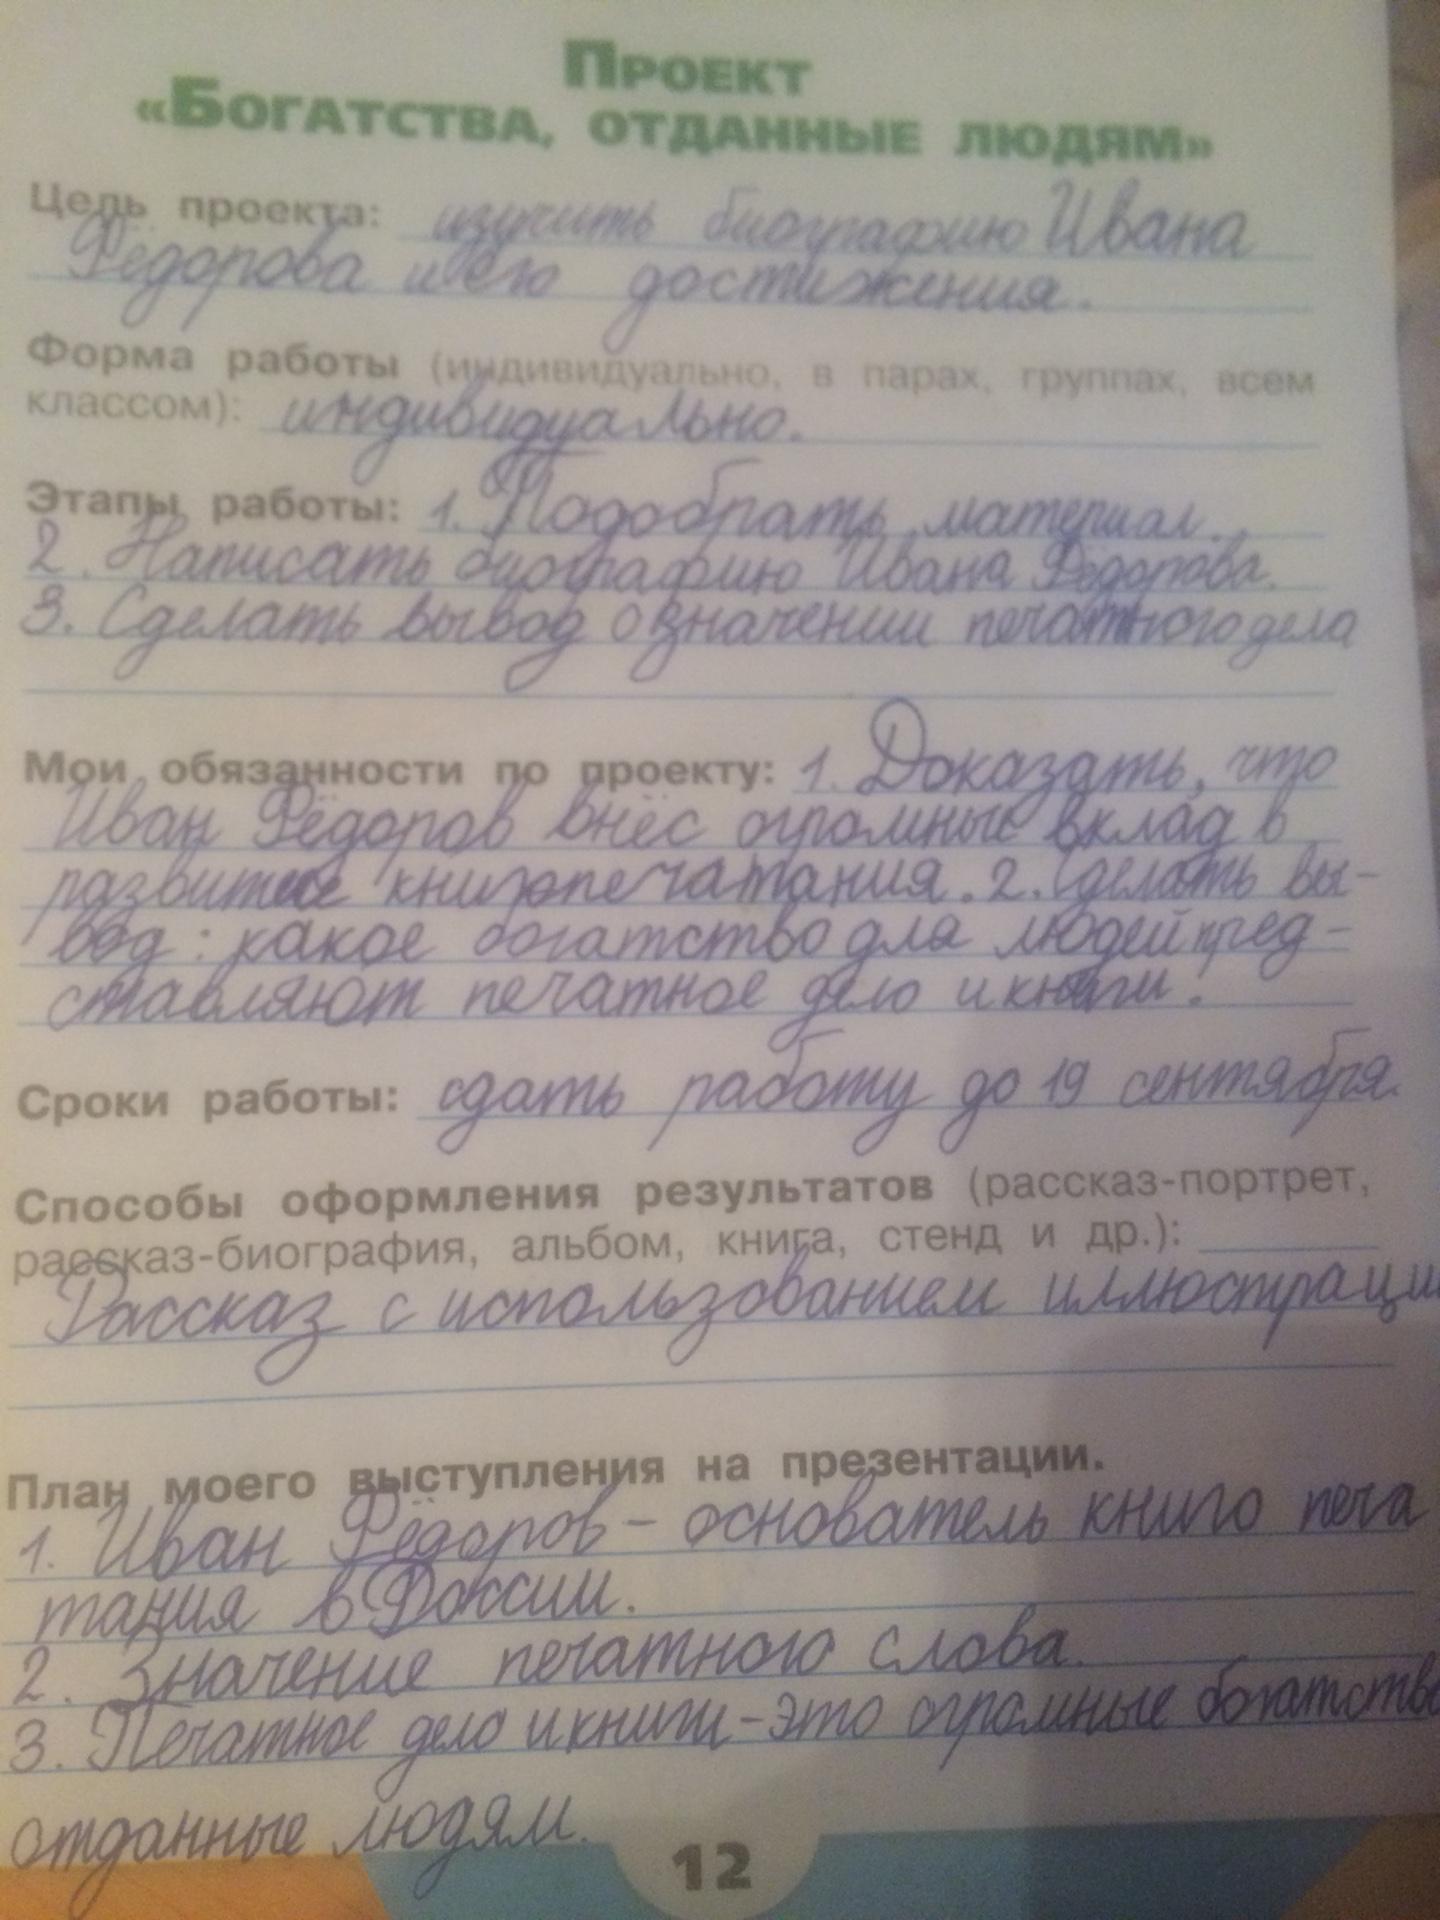 Проект
«Богатства, отданные людям»
Цель проекта: изучить биографию Ивана
Фёдорова и его достижения.
Форма работы (индивидуально, в парах, группах, всем
классом): индивидуально.
Этапы работы: 1. Подобрать материал.
2. Написать биографию Ивана Фёдорова.
3. Сделать вывод о значении печатного дела
Мои обязанности по проекту: 1. Доказать, что
Иван Фёдоров внёс огромные вклад в
развитие книгопечатания. 2. Сделать вы-
вод: какое богатство для людей пред-
ставляют печатное дело и книги.
Сроки работы: сдать работу до 19 сентября.
Способы оформления результатов (рассказ-портрет,
рассказ-биография, альбом, книга, стенд и др.):
Рассказ с использованием иллюстраци
План моего выступления на презентации.
1. Иван Фёдоров – основатель книго печа
тания в России.
2. Значение печатного слова.
3. Печатное дело и книги – это огромные богатства
отданные людям.
12